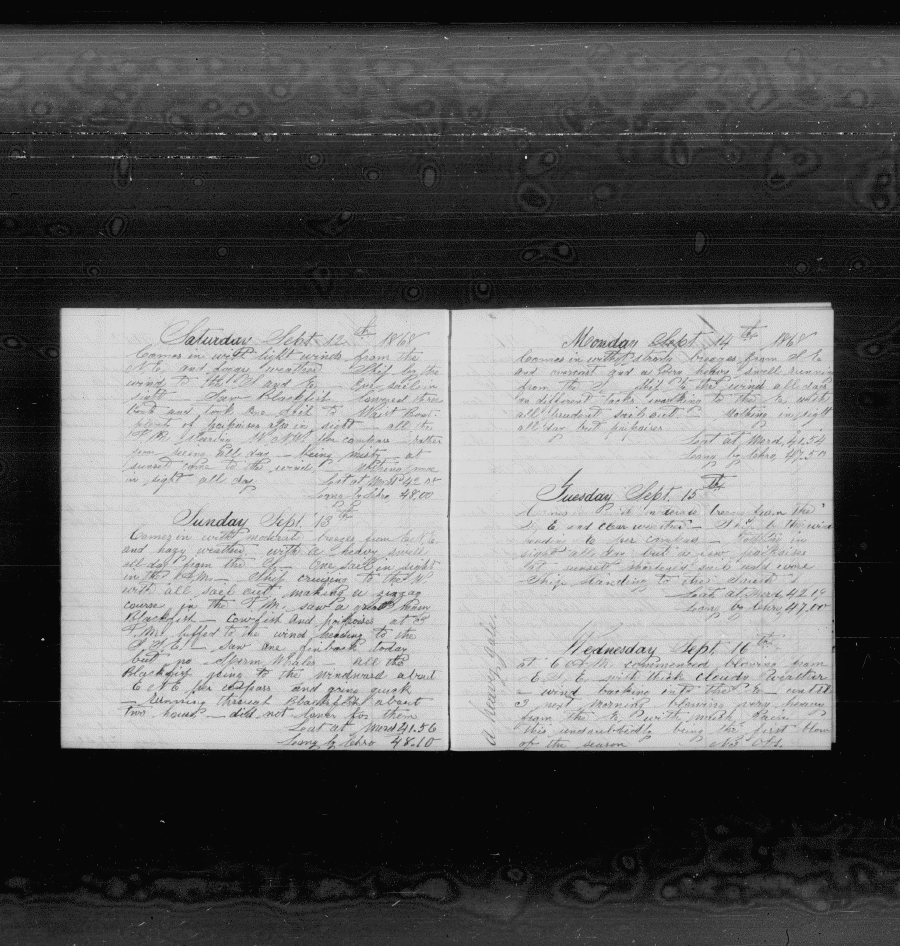 Saturday Sept. 12th 1868
Comes in with light winds from the
N.E. and foggy weather Ship by the
wind to the S and E. One sail in
sight Saw Blackfish lowered three
boats and took one Ship to Waist Boat
plenty of porpoises also in sight all the
W. N.W. per compass rather
all day being misty at
sunset came to the wind. Nothing more
in sight all day. Lat at Merd 42.00
Long by Chro 48.00
Sunday Sept. 13th
Comes in with moderate breezes from
and hazy weather with a heavy swell
all day from the One sail in sight
in the Ship cruising to the
with all sail out making a zigzag
course in the P.M. saw a great many
Blackfish Cowfish and porpoises at 3
P.M. luffed to the wind heading to the
Saw one finback today
but no Sperm Whales all the
Blackfish going to the windward about
E N E per compass and going quick
running through Blackfish about
two hours did not lower for them
Lat at Merd 41.56
Long by Chro 48.10
Monday Sept 14th 1868
Comes in with steady breezes from S E
and overcast and a very heavy swell running
from the S. Ship by the wind all day
on different tacks working to the E. with
all prudent sail out Nothing in sight
all day but porpoises
Lat at Merd, 41.54
Long by Chro, 47.50
Tuesday Sept. 15th
Comes in with moderate breezes from the
S. E and clear weather Ship by the wind
heading to per compass Nothing in
sight all day but a few porpoises
at sunset shortened sail and wore
Ship standing to the
Lat at Merd, 42.19
Long by Chro, 47.00
A heavy gale.
Wednesday Sept. 16th
at 6 A.M. commenced blowing from
E. S. E with thick cloudy weather
wind backing into the E until
next morning blowing very heavy
from the with misty rain
this undoubtedly being the first blow
of the season No Obs.